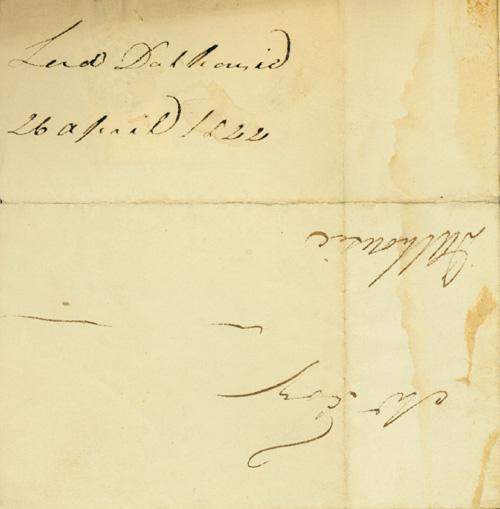 Lord Dalhousie
26 April 1822
Dalhousie